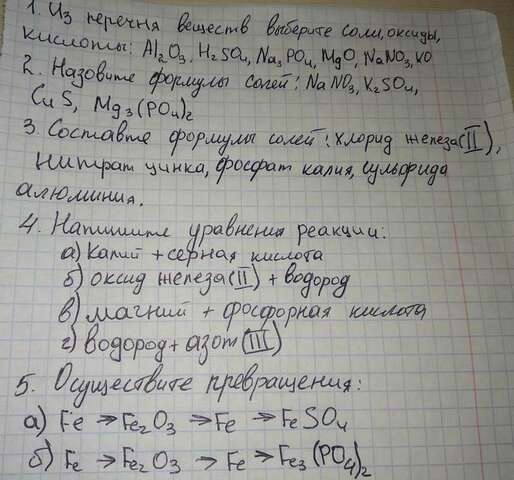 1. Из перечня веществ выберите соли, оксиды,
кислоты: Al₂O₃, H₂SO₄, Na₃PO₄, MgO, NaNO₃, KO
2. Назовите формулы солей: NaNO₃, K₂SO₄,
CuS, Mg₃(PO₄)₂
3. Составте формулы солей: хлорид железа(II),
нитрат цинка, фосфат калия, сульфида
алюминия.
4. Напишите уравнения реакции:
а) калий + серная кислота
б) оксид железа(II) + водород
в) магний + фосфорная кислота
г) водород + азот(III)
5. Осуществите превращения:
а) Fe → Fe₂O₃ → Fe → FeSO₄
б) Fe → Fe₂O₃ → Fe → Fe₃(PO₄)₂